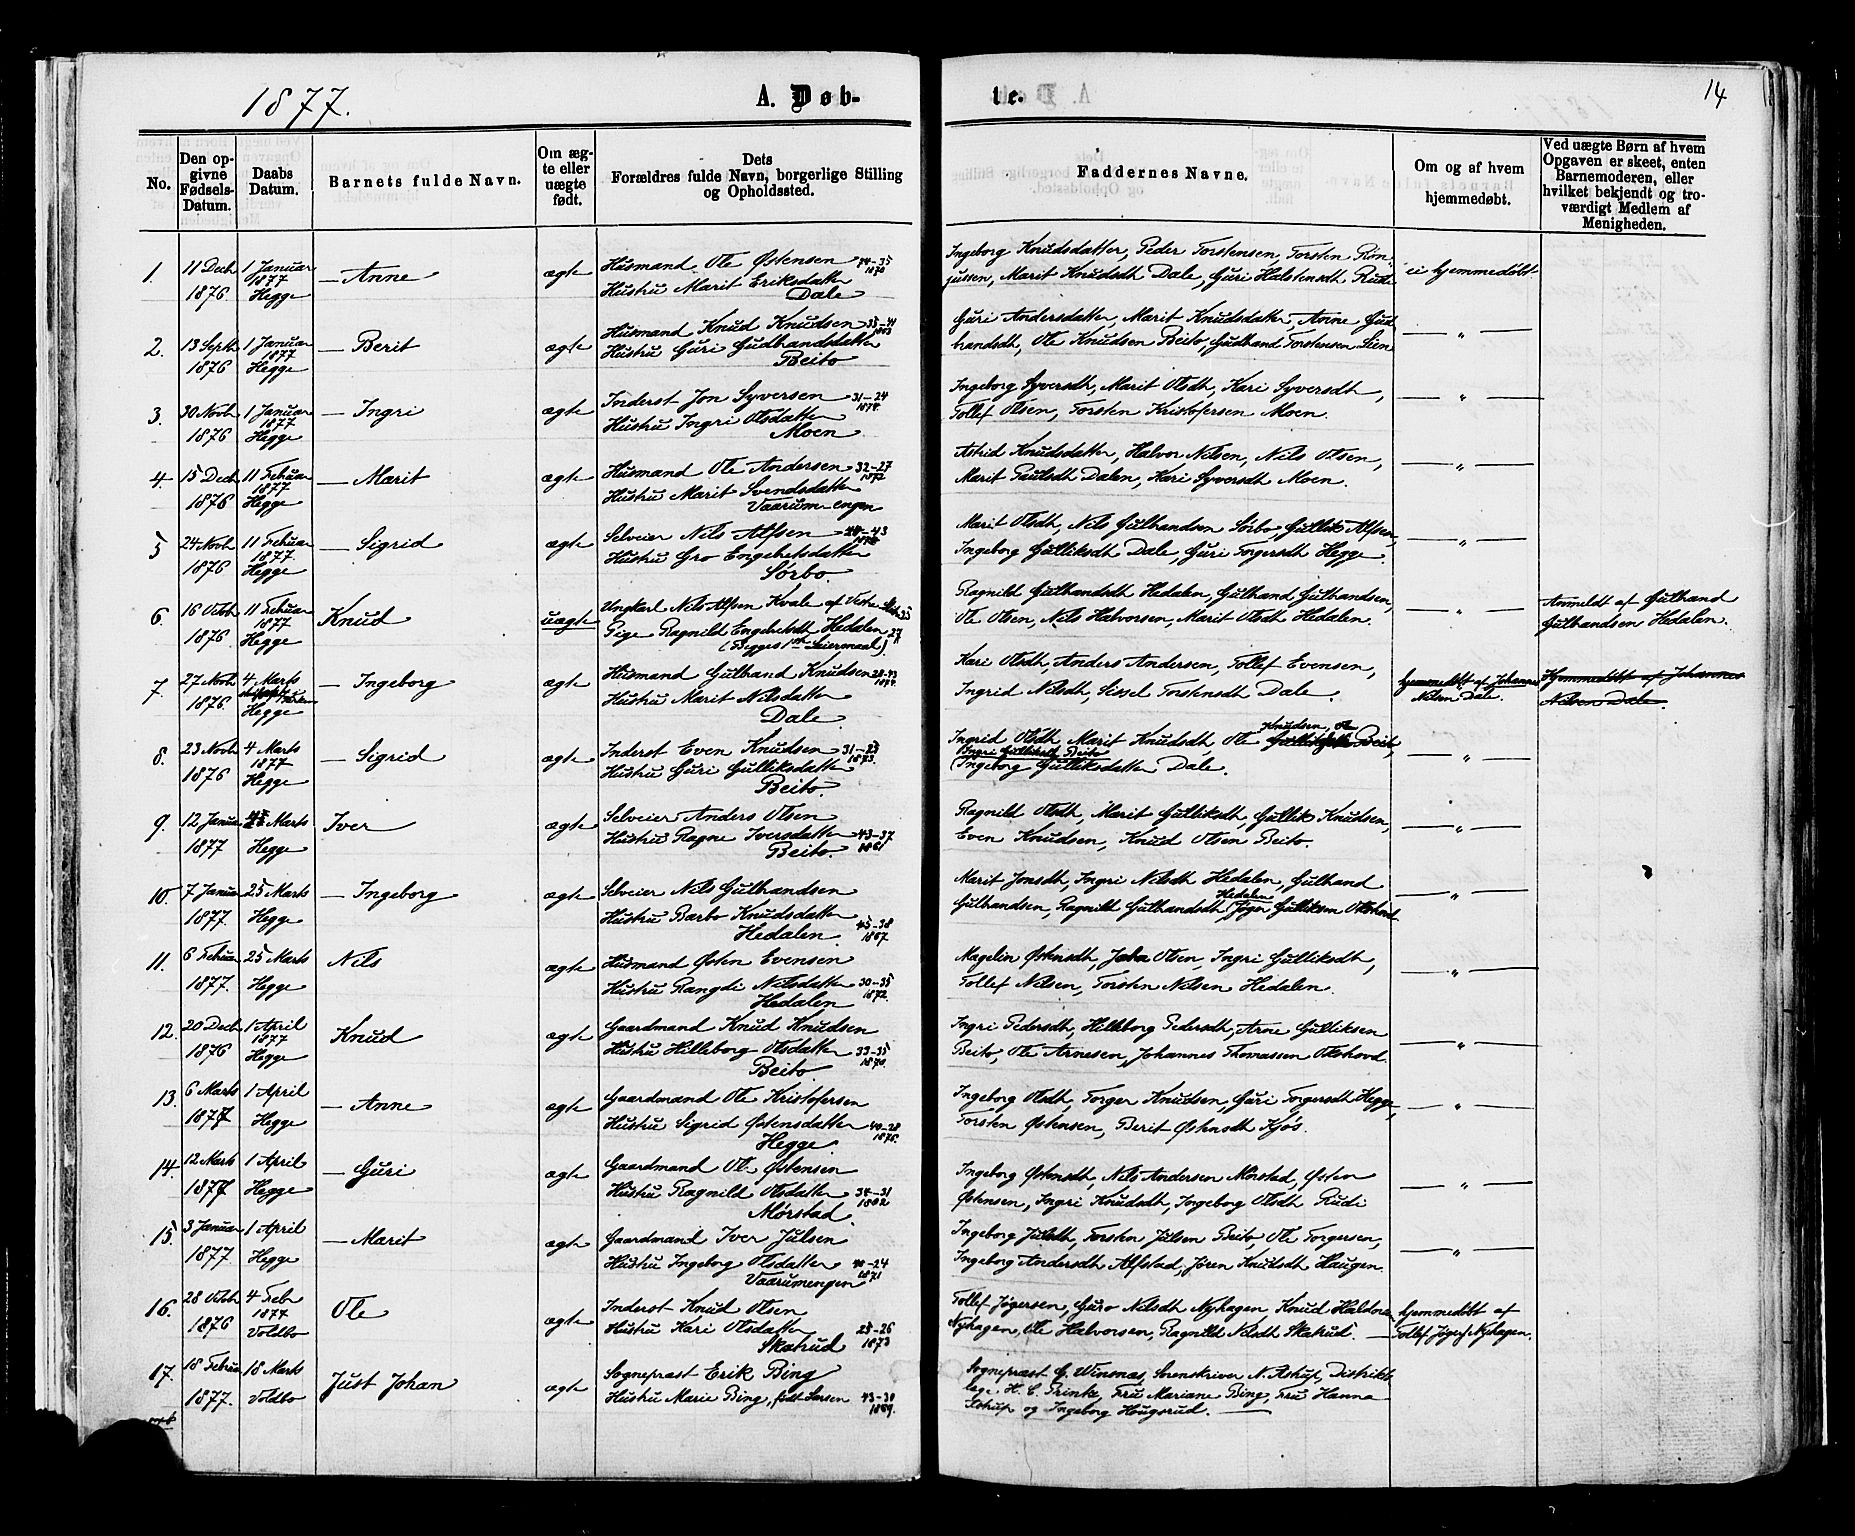 1877.
A. Døb-
te.
14
No.
Den op-
givne
Fødsels-
Datum.
Daabs
Datum.
Barnets fulde Navn.
Om æg-
te eller
uægte
født.
Dets
Forældres fulde Navn, borgerlige Stilling
og Opholdssted.
Faddernes Navne.
Om og af hvem
hjemmedøbt.
Ved uægte Børn af hvem
Opgaven er skeet, enten
Barnemoderen, eller
hvilket bekjendt og tro-
værdigt Medlem af
Menigheden.
1. 11 Decb 1876. 1 Januar 1877 Hegge — Anne ægte
Husmand Ole Østensen 34-35
Hustru Marit Eriksdatter 1870
Dale
Ingeborg Knudsdatter, Peder Torstensen, Torsten Røn-
jussen, Marit Knudsdth Dale, Guri Halstensdth Rudi
ei hjemmedøbt.
2. 13 Septb 1876 1 Januar 1877 Hegge — Berit ægte
Husmand Knud Knudsen 35-41
Hustru Guri Gudbrandsdatter
Beito
Guri Andersdatter, Marit Knudsdatter, Anne Gud-
brandsdth, Ole Knudsen Beito, Gulbrand Torstensen
— " —
3. 30 Novb 1876 1 Januar 1877 Hegge — Ingri ægte
Inderst Jon Syversen 31-24
Hustru Ingri Olsdatter 1874.
Moen
Ingeborg Syversdth, Marit Olsdth, Kari Syversdth,
Tollef Olsen, Torsten Kristofersen Moen.
— " —
4. 15 Decb 1876 11 Februar 1877 Hegge — Marit ægte
Husmand Ole Andersen 32-27
Hustru Marit Svendsdatter 1872
Vaarumengen
Astrid Knudsdatter, Halvor Nilsen, Nils Olsen,
Marit Paulsdth Dalen, Kari Syversdth Moen.
— " —
5 24 Novb 1876 11 Februar 1877 Hegge — Sigrid ægte
Selveier Nils Alfsen
Hustru Gro Engebretsdatter
Sørbo.
Marit Olsdth, Nils Gulbrandsen Sørbo, Gullik Alfsen,
Ingeborg Gulliksdth Dale, Guri Torgersdth Hegge.
— " —
6. 16 Octob 1876 11 Februar 1877 Hegge Knud uægte
Ungkarl Nils Alfsen Kvale af Vestre Slidre 35
Pige Ragnild Engebretsdth Hedalen 27
(Begges 1ste Leiermaal)
Ragnild Gulbrandsdth Hedalen, Gulbrand Gulbrandsen,
Ole Olsen, Nils Halvorsen, Marit Olsdth Hedalen.
— " —
Anmeldt af Gulbrand
Gulbrandsen Hedalen.
7. 27 Novb 1876. 4 Marts Hegge — Ingeborg ægte
Husmand Gulbrand Knudsen 28-43
Hustru Marit Nilsdatter 1874.
Dale
Kari Olsdth, Anders Andersen, Tollef Evensen,
Ingrid Nilsdth, Sissel Torstensdth Dale.
hjemmedøbt af Johannes
Nilsen Dale.
Hjemmedøbt af Johannes
Nilsen Dale.
8. 23 Novb 1876 4 Marts 1877 Hegge — Sigrid ægte
Inderst Even Knudsen 31-23
Hustru Guri Gulliksdatter 1873.
Beito.
Ingrid Olsdth, Marit Knudsdth, Ole Knudsen, Beito,
Ingri Gulliksdth Beito
Ingeborg Gulliksdatter Dale.
— " —
9. 12 Januar 1877 Marts Hegge Iver ægte
Selveier Anders Olsen
Hustru Ragne Iversdatter 43-37
Beito. 1861
Ragnild Olsdth, Marit Gulliksdth, Gullik Knudsen,
Even Knudsen, Knud Olsen Beito.
— " —
10. 7 Januar 1877. 25 Marts Hegge — Ingeborg ægte
Selveier Nils Gulbrandsen
Hustru Barbo Knudsdatter 45-38
Hedalen. 1867
Marit Jonsdth, Ingri Nilsdth Hedalen, Gulbrand
Gulbrandsen, Ragnild Gulbrandsdth Hedalen, Jøger Gulliksen Okshovd.
— " —
11. 6 Februar 1877. 25 Marts Hegge Nils ægte
Husmand Østen Evensen
Hustru Rangdi Nilsdatter 30-35
Hedalen 1872.
Magelin Østensdth, John Olsen, Ingri Gulliksdth,
Tollef Nilsen, Torsten Nilsen Hedalen.
— " —
12. 20 Decb 1876 1 April 1877 Hegge Knud ægte
Gaardmand Knud Knudsen
Hustru Hilleborg Olsdatter 33-35
Beito 1870.
Ingri Pedersdth, Hilleborg Pedersdth, Arne Gulliksen
Beito, Ole Arnesen, Johannes Thomassen Okshovd.
— " —
13. 6 Marts 1877 1 April Hegge — Anne ægte
Gaardmand Ole Kristofersen
Hustru Sigrid Østensdatter 40-28
Hegge. 1875.
Ingeborg Olsdth, Torger Knudsen, Guri Torgersdth Hegge,
Torsten Østensen, Berit Østensdth Kjøs.
— " —
14. 12 Marts 1877 1 April Hegge — Guri ægte
Gaardmand Ole Østensen
Hustru Ragnild Olsdatter 34-31
Mørstad.
Ingeborg Østensdth, Nils Andersen Mørstad, Østen
Østensen, Ingri Knudsdth, Ingeborg Olsdth Rudi
— " —
15. 3 Januar 1877 1 April Hegge — Marit ægte
Gaardmand Iver Julsen
Hustru Ingeborg Olsdatter 40-24
Vaarumengen 1871
Ingeborg Julsdth, Torsten Julsen Beito, Ole Torgersen,
Ingeborg Andersdth Alfstad, Jøren Knudsdth Haugen.
— " —
16. 28 Octob 1876 4 Febr 1877 Voldbo Ole ægte
Inderst Knud Olsen
Hustru Kari Olsdatter 25-26
Skatrud 1873
Tollef Jøgersen, Guro Nilsdth Nyhagen, Knud Haldorsen
Nyhagen, Ole Halvorsen, Ragnild Nilsdth Skatrud. —
hjemmedøbt af
Tollef Jøgers. Nyhagen.
17. 18 Februar 1877. 18 Marts Voldbo Just Johan ægte
Sognepræst Erik Bing
Hustru Marie Bing, født Larsen 43-30
1869.
Sognepræst C. Winsnes, Sorenskriver N. Astrup, Distrikts-
læge H. C. Printz, Fru Mariane Bing, Fru Hanna
Astrup og Ingeborg Hougsrud. —